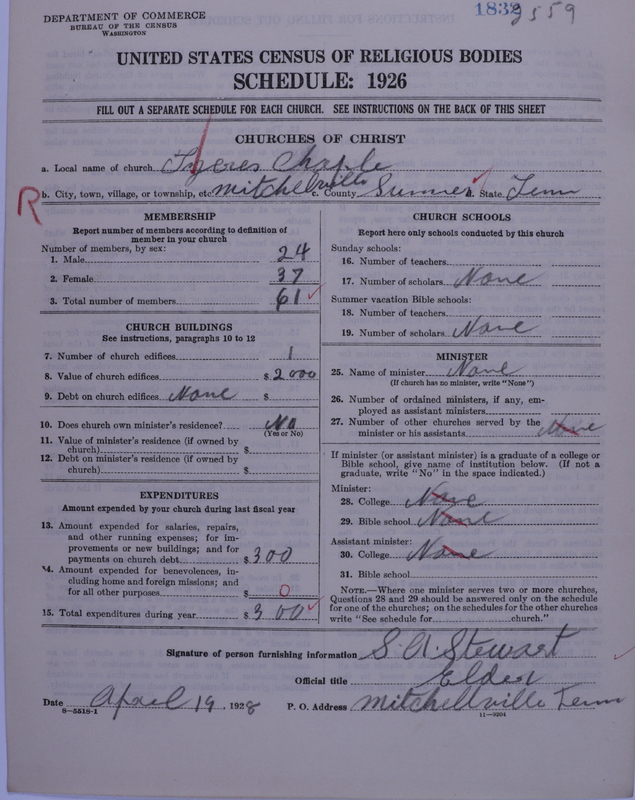 DEPARTMENT OF COMMERCE
BUREAU OF THE CENSUS
WASHINGTON
1832 2559
UNITED STATES CENSUS OF RELIGIOUS BODIES
SCHEDULE: 1926
FILL OUT A SEPARATE SCHEDULE FOR EACH CHURCH. SEE INSTRUCTIONS ON THE BACK OF THIS SHEET
CHURCHES OF CHRIST
a. Local name of church Chaple
R
b. City, town, village, or township, etc. Mitchellville c. County Sumner d. State Tenn
MEMBERSHIP
Report number of members according to definition of
member in your church
Number of members, by sex:
1. Male 24
2. Female 37
3. Total number of members 61
CHURCH BUILDINGS
See instructions, paragraphs 10 to 12
7. Number of church edifices 1
8. Value of church edifices $ 2000
9. Debt on church edifices None $
10. Does church own minister's residence? No
(Yes or No)
11. Value of minister's residence (if owned by
church) $
12. Debt on minister's residence (if owned by
church) $
EXPENDITURES
Amount expended by your church during last fiscal year
13. Amount expended for salaries, repairs,
and other running expenses; for im-
provements or new buildings; and for
payments on church debt $ 300
14. Amount expended for benevolences, in-
cluding home and foreign missions; and
for all other purposes $ 0
15. Total expenditures during year $ 300
CHURCH SCHOOLS
Report here only schools conducted by this church
Sunday schools:
16. Number of teachers
17. Number of scholars None
Summer vacation Bible schools:
18. Number of teachers
19. Number of scholars None
MINISTER
25. Name of minister None
(If church has no minister, write "None")
26. Number of ordained ministers, if any, em-
ployed as assistant ministers
27. Number of other churches served by the
minister or his assistants None
If minister (or assistant minister) is a graduate of a college or
Bible school, give name of institution below. (If not a
graduate, write "No" in the space indicated.)
Minister:
28. College None
29. Bible school None
Assistant minister:
30. College None
31. Bible school
NOTE.—Where one minister serves two or more churches,
Questions 28 and 29 should be answered only on the schedule
for one of the churches; on the schedules for the other churches
write "See schedule for church."
Signature of person furnishing information S. A. Stewart
Official title Elder
Date April 19, 1928 P. O. Address Mitchellville Tenn
8-5518-1 11-9294